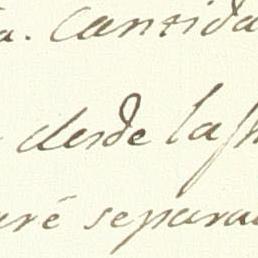 a. Cantida
desde la
aré separa